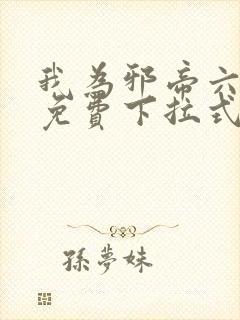 我为邪帝六
免費下拉式
孫夢妹